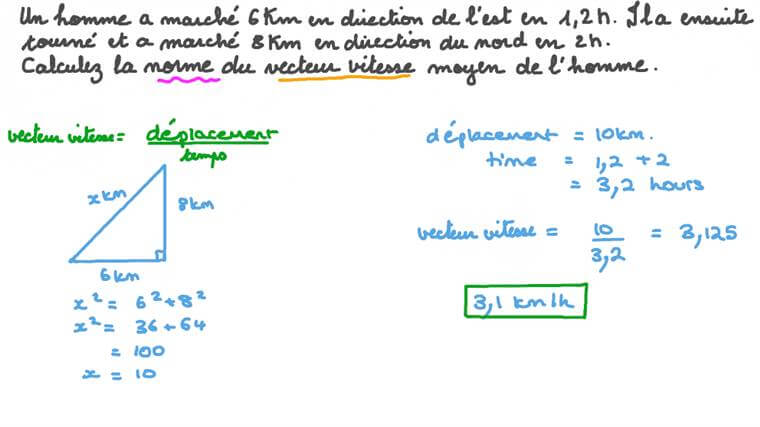 Un homme a marché 6 Km en direction de l'est en 1,2 h. Il a ensuite
tourné et a marché 8 Km en direction du nord en 2 h.
Calculez la norme du vecteur vitesse moyen de l'homme.
vecteur vitesse = déplacement
temps
x km
8 km
6 km
x² = 6² + 8²
x² = 36 + 64
= 100
x = 10
déplacement = 10 km.
time = 1,2 + 2
= 3,2 hours
vecteur vitesse = 10 = 3,125
3,2
3,1 km/h